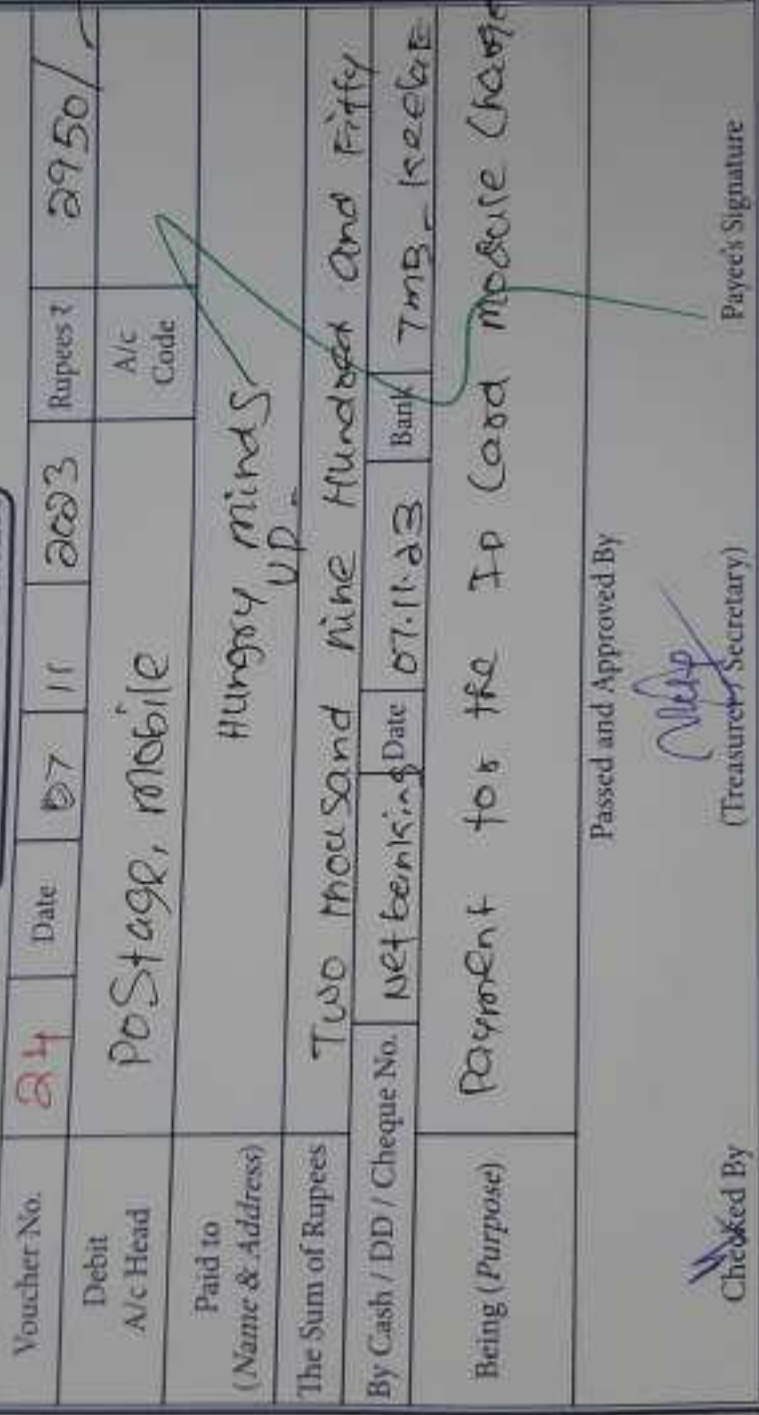 Voucher No. 24 Date 07 11 2023 Rupees ₹ 2950/-
Debit A/c Head Postage, Mobile A/c Code
Paid to (Name & Address) Hungry minds
UP.
The Sum of Rupees Two Thousand Nine Hundred and Fifty
By Cash / DD / Cheque No. Net banking Date 07.11.23 Bank TMB-
Being (Purpose) Payment for the ID Card Module Charge
Passed and Approved By
Checked By (Treasurer / Secretary) Payee's Signature